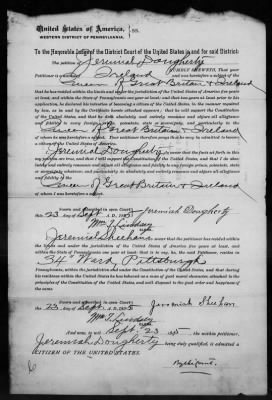 United States of America, } ss.
WESTERN DISTRICT OF PENNSYLVANIA.
To the Honorable Judge of the District Court of the United States in and for said District:
The petition of Jeremiah Dougherty
RESPECTFULLY SHOWETH, That your
Petitioner is a native of Ireland and was heretofore a subject of the
Queen of Great Britain & Ireland
that he has resided within the United States and under the jurisdiction of the United States five years
at least, and within the State of Pennsylvania one year at least; and that two years at least prior to his
application, he declared his intention of becoming a citizen of the United States, in the manner required
by law, as in and by the Certificate hereto attached appears; that he will support the Constitution
of the United States, and that he doth absolutely and entirely renounce and abjure all allegiance
and fidelity to every foreign prince, potentate, state, or sovereignty whatsoever, and particularly to the
Queen of Great Britain & Ireland
of whom he was heretofore a subject.
Jeremiah Dougherty
petition are true, and that I will support the Constitution of the United States, and that I do abso-
lutely and entirely renounce and abjure all allegiance and fidelity to any foreign prince, potentate, state
or sovereignty whatever, and particularly do absolutely and entirely renounce and abjure all allegiance
and fidelity to the
Queen of Great Britain & Ireland
of whom I was heretofore a subject.
Sworn and subscribed in open Court
23 day of Sept A. D. 1895 Jeremiah Dougherty
Wm T. Lindsey
Jeremiah Sheehan
34 Ward Pittsburgh
Pennsylvania, within the jurisdiction and under the Constitution of the United States, and that during
his residence within the United States he has behaved as a man of good moral character, attached to the
principles of the Constitution of the United States, and well disposed to the good order and happiness of
the same.
Sworn and subscribed in open Court
23 day of Sept A. D. 1895 Jeremiah Sheehan
Wm T. Lindsey
And now, to wit: Sept 23 1895, the within petitioner,
Jeremiah Dougherty being duly qualified, is admitted a
CITIZEN OF THE UNITED STATES.
By the Court.